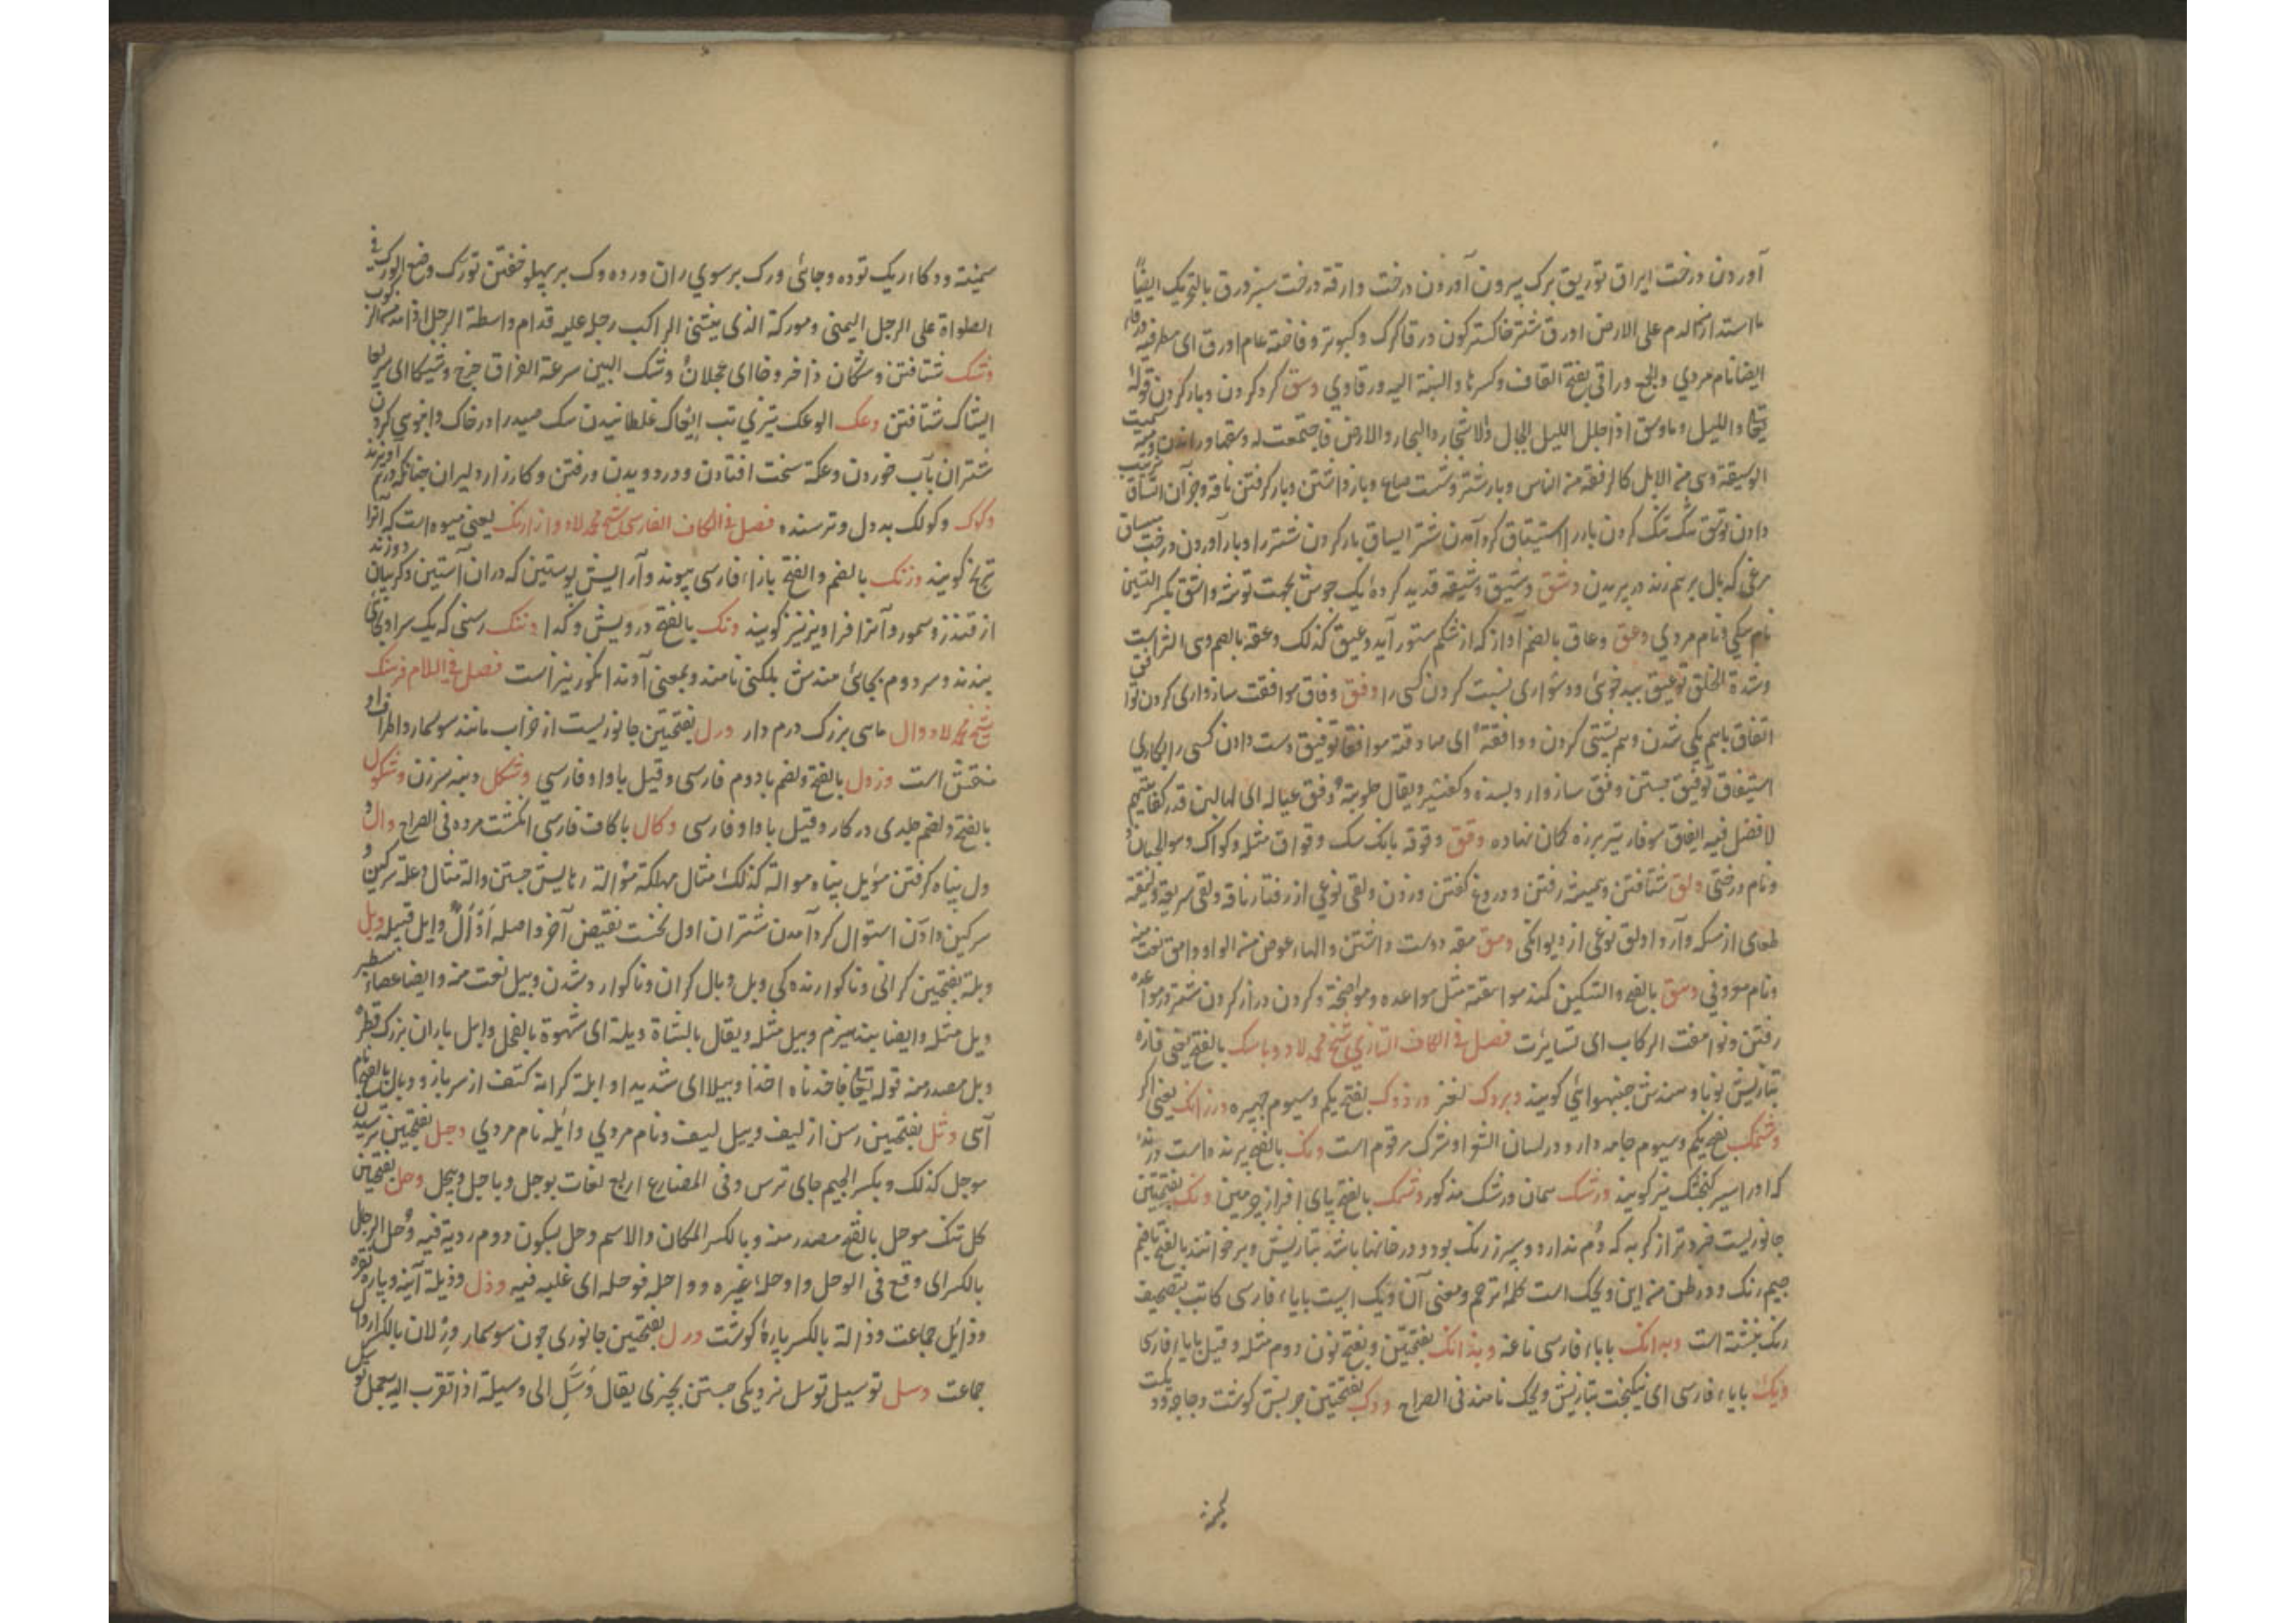 آوردن درخت ایراق توریق برک بیرون آوردن درخت وارقة درخت سبز ورق بالتحریک ایضًا
ما استدار من الدم علی الارض اورق شتر خاکسترکون ورقا کرک و کبوتر و فاخته عام اورق ای مطر فیه
ایضا نام مردی والجمع وراقی بفتح القاف وکسرها والنسبة الیه ورقاوی وسق کرد کردن وبار کردن قوله
تعالی واللیل وماوسق اذا جلل اللیل الجبال والاشجار والبحار والارض فاجتمعت له وسقها وراندن
الوسیقة وهی من الابل کالرفقة من الناس وبار شتر وشست صاع وبازداشتن وبار کرفتن ناقه وجزآن اتساق
دادن توسق تنک کردن بار را استیساق کرد آمدن شتر ایساق بار کردن شتر را وبار آوردن درخت
مرغی که بال برهم زند در پریدن وشق وشیق وشیقه قدید کرده یک جوش بجهت توشه واشق بکسر الشین
نام سکی ونام مردی وعق وعاق بالضم آواز که از شکم ستور آید وعیق کذلک وعقه بالضم
وشدة الخلق توعیق ببدخوئی ودشواری نسبت کردن کسی را وفق وفاق موافقت سازواری کردن
اتفاق باهم یکی شدن وهم پشتی کردن ووافقته ای صادفته موافقا توفیق دست دادن کسی را بکاری
استیفاق توفیق جستن وفق سازوار وبسنده ویقال حلوبته وفق عیاله ای لها لبن قدر کفایتهم
لا فضل فیه ایفاق سوفار تیر برزه کمان نهاده وقق وقوقه بانک سک وقواق مثله وکواک وهو الجبان
ونام درختی ولق شتافتن وهمیشه رفتن ودروغ کفتن وزدن ولقی نوعی از رفتار ناقه ولقی سریعة ولیقة
طعامی از مسکه وآرد اولق نوعی از دیوانکی ومق مقه دوست داشتن والهاء عوض من الواو وامق نعت منه
ونام معروفی وهق بالفتح والتسکین کمند مواهقة مثل مواعده ومواضخة وکردن دراز کردن شتر
رفتن وتواهقت الرکاب ای تسایرت فصل فی الکاف التازی شیخ محمد لاد وباسک بالفتح یعنی فازه
بتازیش ثوبا وهندش جنبهوائی کویند وبروک لغز وردوک بفتح یکم وسیوم جهیره ورزانک یعنی
وشمک بفتح یکم وسیوم جامه دار ودر لسان الشعرا وشرک مرقوم است ونک بالفتح پرنده است
که او را سیر کنجشک نیز کویند ورشک سمان ورشک مذکور وشمک بالفتح پای افراز چرمین ونک بفتحتین
جانوریست فروتر از کربه که دم ندارد وسیرز رنک بود ودر خانها باشد بتازیش وبر خوانند بالفتح
جیم رنک ودر ظن من این ویک است کلمه ترحم ومعنی آن ویک است بایاء فارسی کاتب بتصحیف
رنک نبشته است وبدانک باباء فارسی ناعنه وبندانک بفتحتین وبفتح نون دوم مثله وقیل بایاء فارسی
ویک بایاء فارسی ای نیکبخت بتازیش ویحک نامند فی الصراح ودک بفتحتین چربش کوشت ودجاجه
سمینه ودکا ریک توده وجائی ورک برسوی ران وردوک بر پهلو خفتن تورک وضع الورک فی
الصلواة علی الرجل الیمنی ومورکة الذی یثنی الراکب رجله علیه قدام واسطة الرحل
وشک شتافتن وشکان ذاخروجا ای عجلان وشک البین سرعة الفراق خرج وشیکا ای سریعا
ایشاک شتافتن وعک الوعک تیزی تب ایعاک غلطانیدن سک صید را در خاک وانبوهی کردن
شتران بآب خوردن وعکة سخت افتادن ودر دویدن ورفتن وکارزار دلیران چنانکه درهم آویزند
وکوک وکولک بددل وترسنده فصل فی الکاف الفارسی شیخ محمد لاد وارنک یعنی میوه است که آنرا
ترنج کویند وژنک بالضم والفتح بازاء فارسی پیوند وآرایش پوستین که در آن آستین وکریبان دوزند
از قندز وسمور وآنرا فراویز نیز کویند ونک بالفتح درویش وکدا وننک رسنی که یک سر او بجائی
بندند وسر دوم بجائی هندش بلکنی نامند وبمعنی آوند انکور نیز است فصل فی اللام فرهنک
شیخ محمد لاد وال ماهی بزرک درم دار ورل بفتحتین جانوریست از خزاب مانند سوسمار واطراف او
منقش است وزول بالفتح وبضم بادوم فارسی وقیل باواو فارسی وشکل دنبه برزن وشکول
بالفتح وبضم جلدی در کار وقیل باواو فارسی وکال باکاف فارسی انکشت مرده فی الصراح وال
ول پناه کرفتن موئل پناه موالة کذلک مثال مهلکة موالة رهایش جستن والة مثال وعلة سرکین
سرکین دادن استوال کرد آمدن شتران اول نخست نقیض آخر واصله اَوْأَل وایل قبیله وبل
وبلة بفتحتین کرانی وناکوارندکی وبل وبال کران وناکوار وشدن وبیل نعت منه وایضا عصاء سطبر
وبل مثله وایضا بند هیزم وبیل مثله ویقال بالشاة وبلة ای شهوة بالفحل وابل باران بزرک قطره
وبل مصدر منه قوله تعالی فاخذناه اخذا وبیلا ای شدیدا وابلة کرانه کتف از سر بازو وبال بالفتح نام
آبی وثل بفتحتین رسن از لیف وبیل لیف ونام مردی واثلة نام مردی وجل بفتحتین ترسیدن
موجل کذلک وبکسر الجیم جای ترس وفی المضارع اربع لغات یوجل ویاجل وییجل وحل بفتحتین
کل تنک موحل بالفتح مصدر منه وبالکسر المکان والاسم وحل بسکون دوم ردیة فیه وحل الرجل
بالکسر ای وقع فی الوحل واوحله غیره وواحله فوحله ای غلبه فیه وذل وذیلة آینه وپاره نقره
وذائل جماعت وذالة بالکسر پارهٔ کوشت ورل بفتحتین جانوری چون سوسمار ورلان بالکسر اورال
جماعت وسل توسیل توسل نزدیکی جستن بچیزی یقال وَسَّل الی وسیلة اذا تقرب الیه بعمل